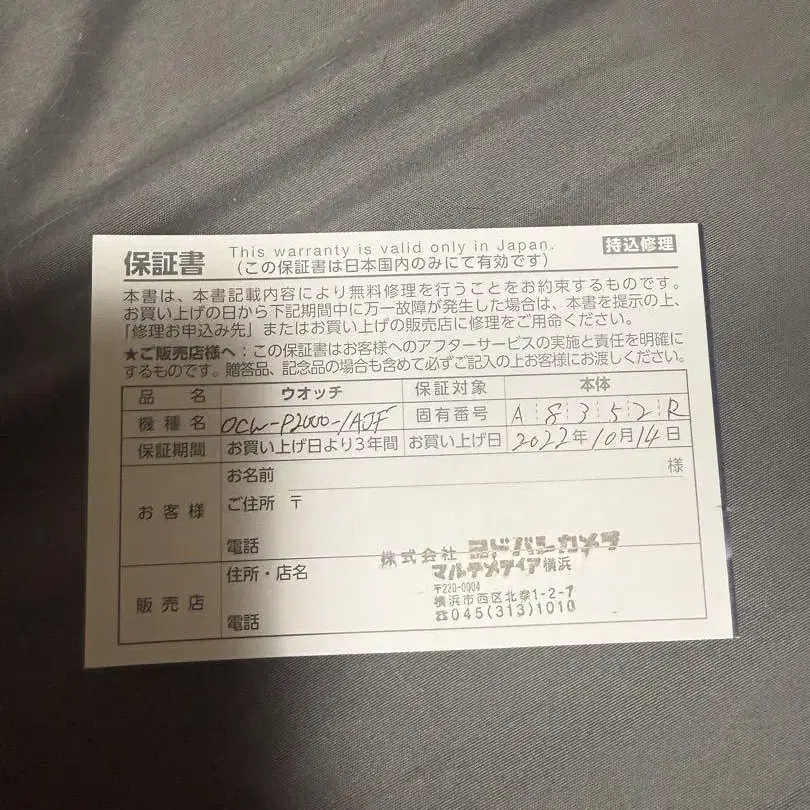 保証書 This warranty is valid only in Japan. 持込修理
(この保証書は日本国内のみにて有効です)
本書は、本書記載内容により無料修理を行うことをお約束するものです。
お買い上げの日から下記期間中に万一故障が発生した場合は、本書を提示の上、
「修理お申込み先」またはお買い上げの販売店に修理をご用命ください。
★ご販売店様へ:この保証書はお客様へのアフターサービスの実施と責任を明確に
するものです。贈答品、記念品の場合も含めて必ずご記入の上お客様にお渡しください。
品名 ウオッチ 保証対象 本体
機種名 OCW-P2000-1AJF 固有番号 A 8 3 5 2 R
保証期間 お買い上げ日より3年間 お買い上げ日 2022年10月14日
お客様 お名前 様
ご住所 〒
電話
販売店 住所・店名 株式会社 ヨドバシカメラ
マルチメディア横浜
〒220-0004
横浜市西区北幸1-2-7
電話 ☎045(313)1010